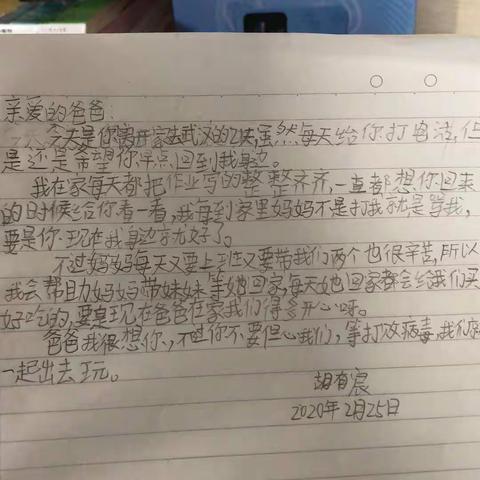 亲爱的爸爸：
今天是你离开家去武汉的乙块,虽然每天给你打电话,但
是还是希望你早点回到我身边。
我在家每天都把作业写的整整齐齐,一直都想你回来
的时候给你看一看,我每到家里妈妈不是打我就是骂我,
要是你现在我身边就好了。
不过妈妈每天又要上班又要带我们两个也很辛苦,所以
我会帮助妈妈带妹妹等她回家,每天她回家都会给我们买
好吃的,要是现在爸爸在家我们得多开心呀。
爸爸我很想你,不过你不要但心我们,等打败病毒,我们
一起出去玩。
胡有宸
2020年2月25日